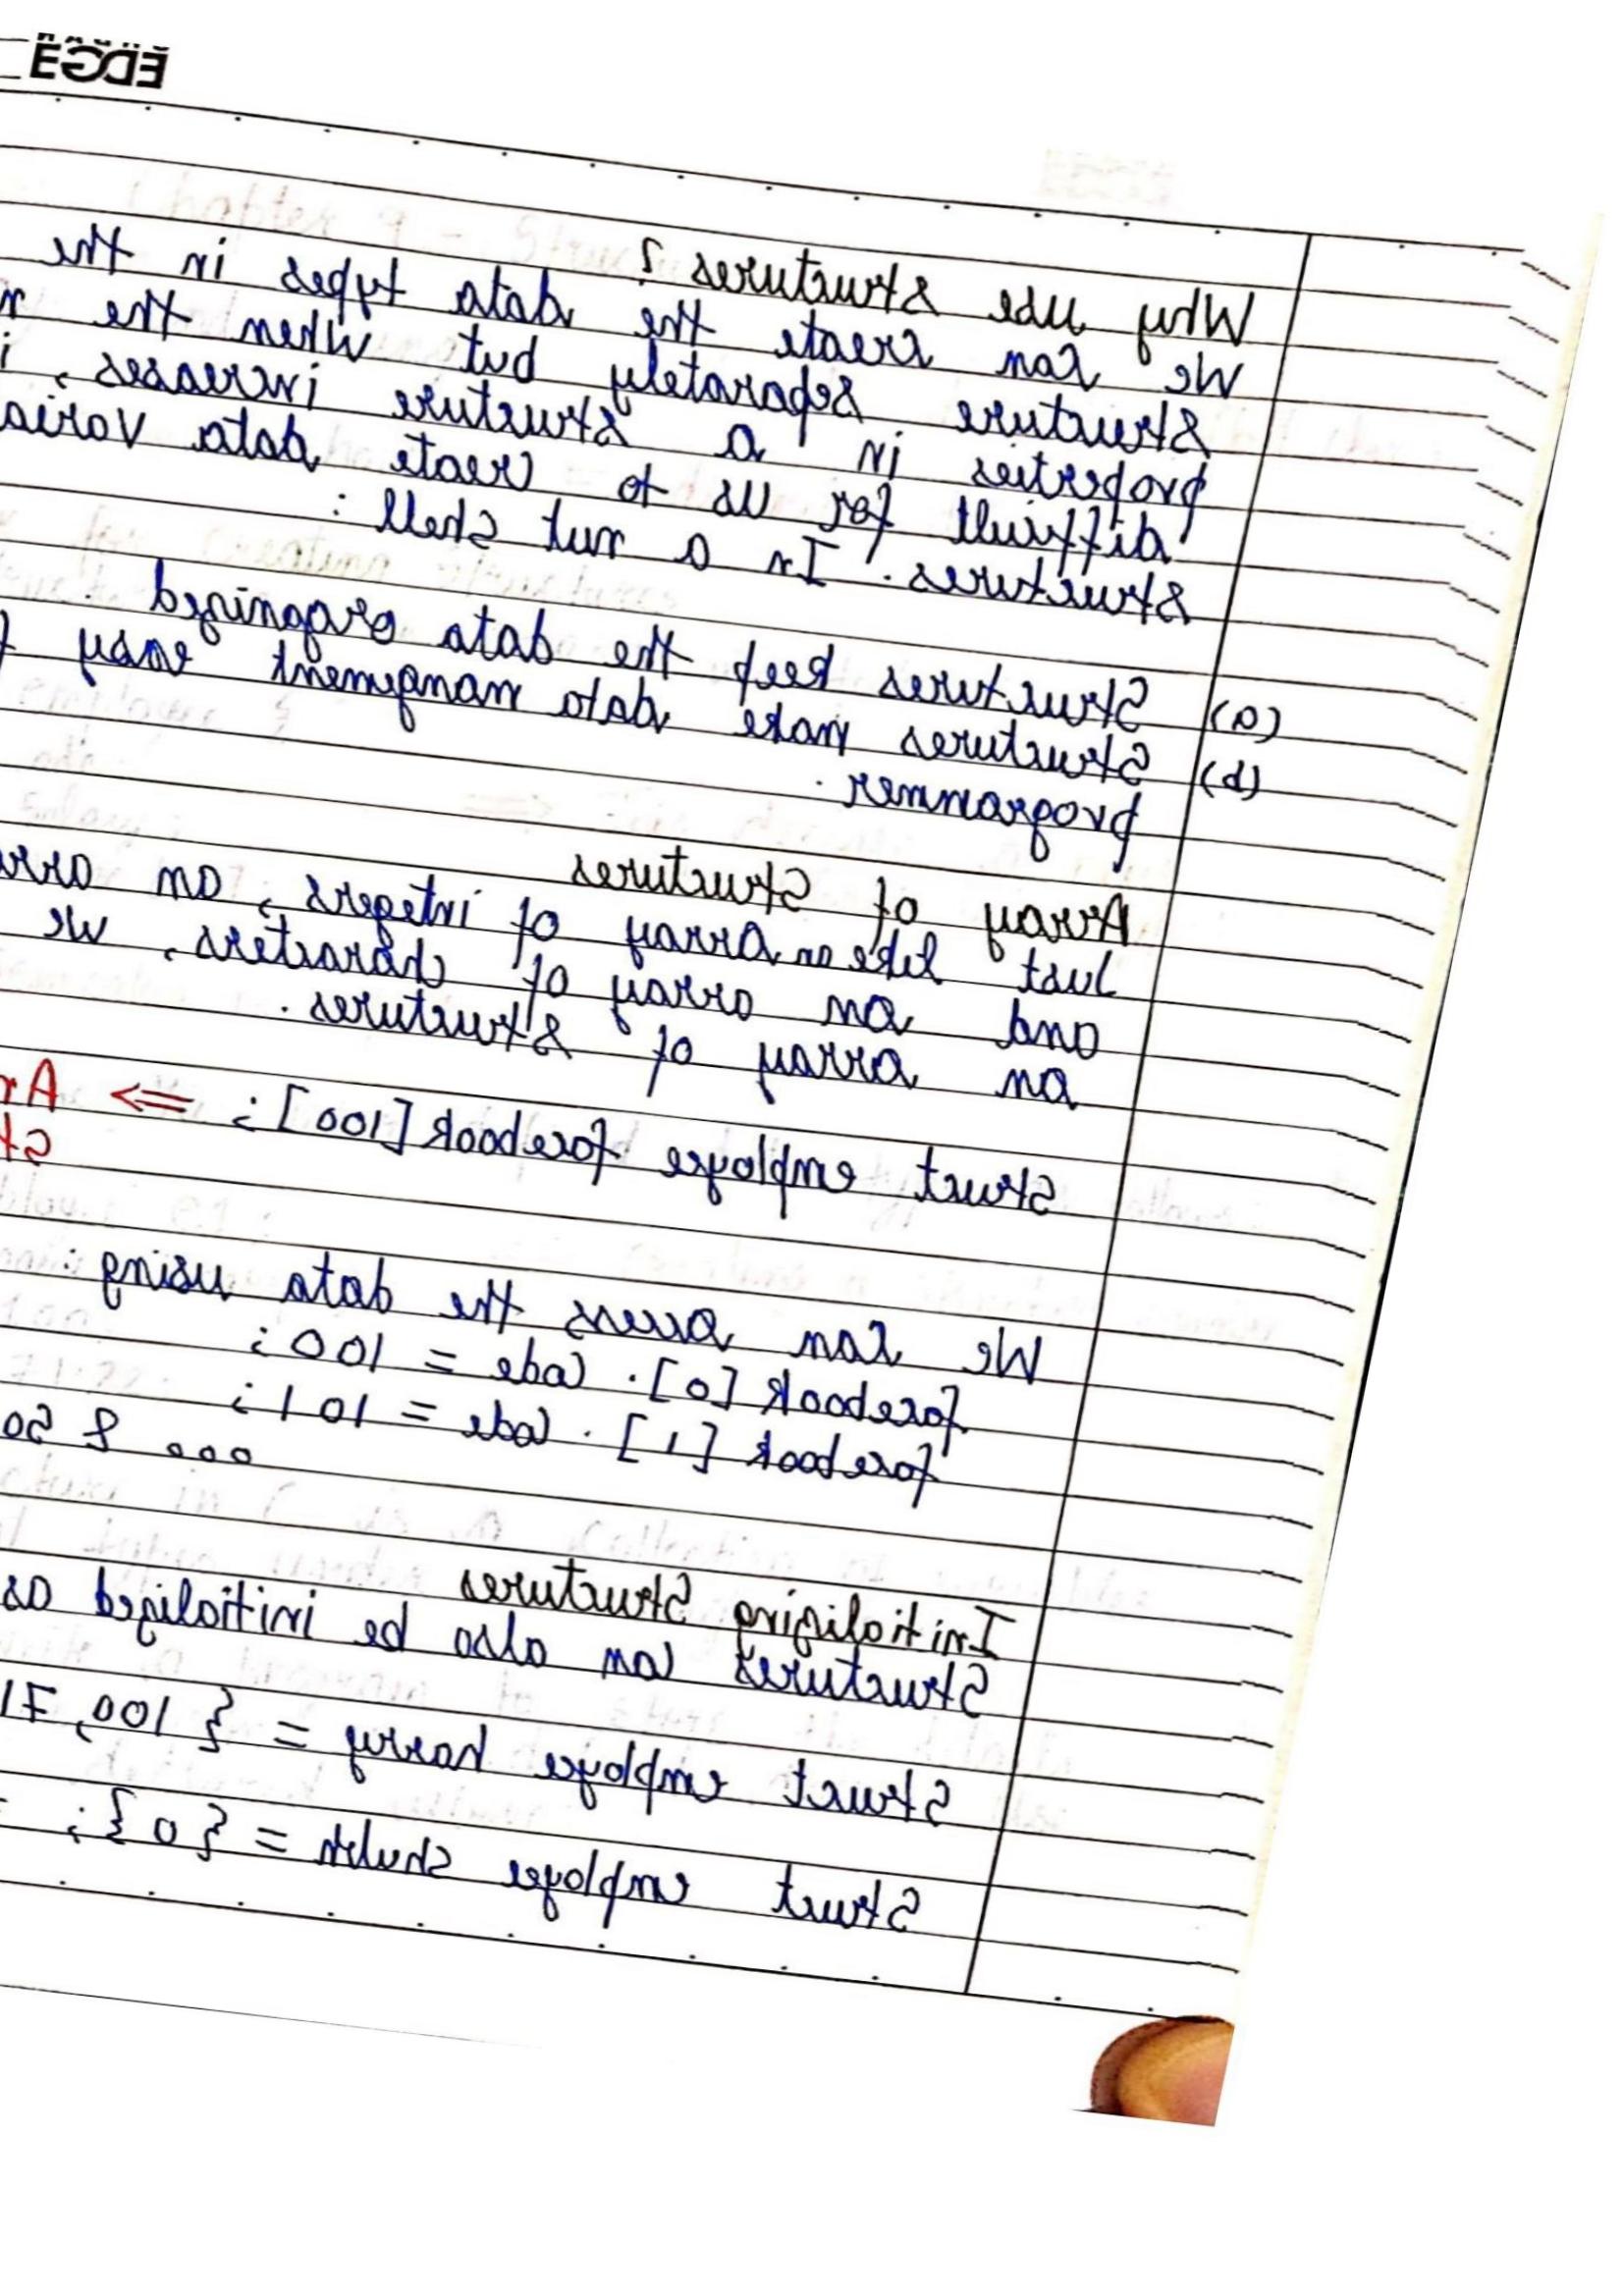 EDGE
Why use structures?
We can create the data types in the
structure separately but when the
properties in a structure increases,
difficult for us to create data
structures. In a nut shell:
(a) Structures keep the data organized
(b) Structures make data management easy
programmer.
Array of Structures
Just like an Array of integers, an
and an array of characters, we
an array of structures.
Struct employee facebook [100]; =>
We can access the data using:
facebook [0]. Code = 100;
facebook [1]. Code = 101;
... & so
Initializing Structures
Structures can also be initialized as
Struct employee harry = { 100, 71
Struct employee shubh = {0};